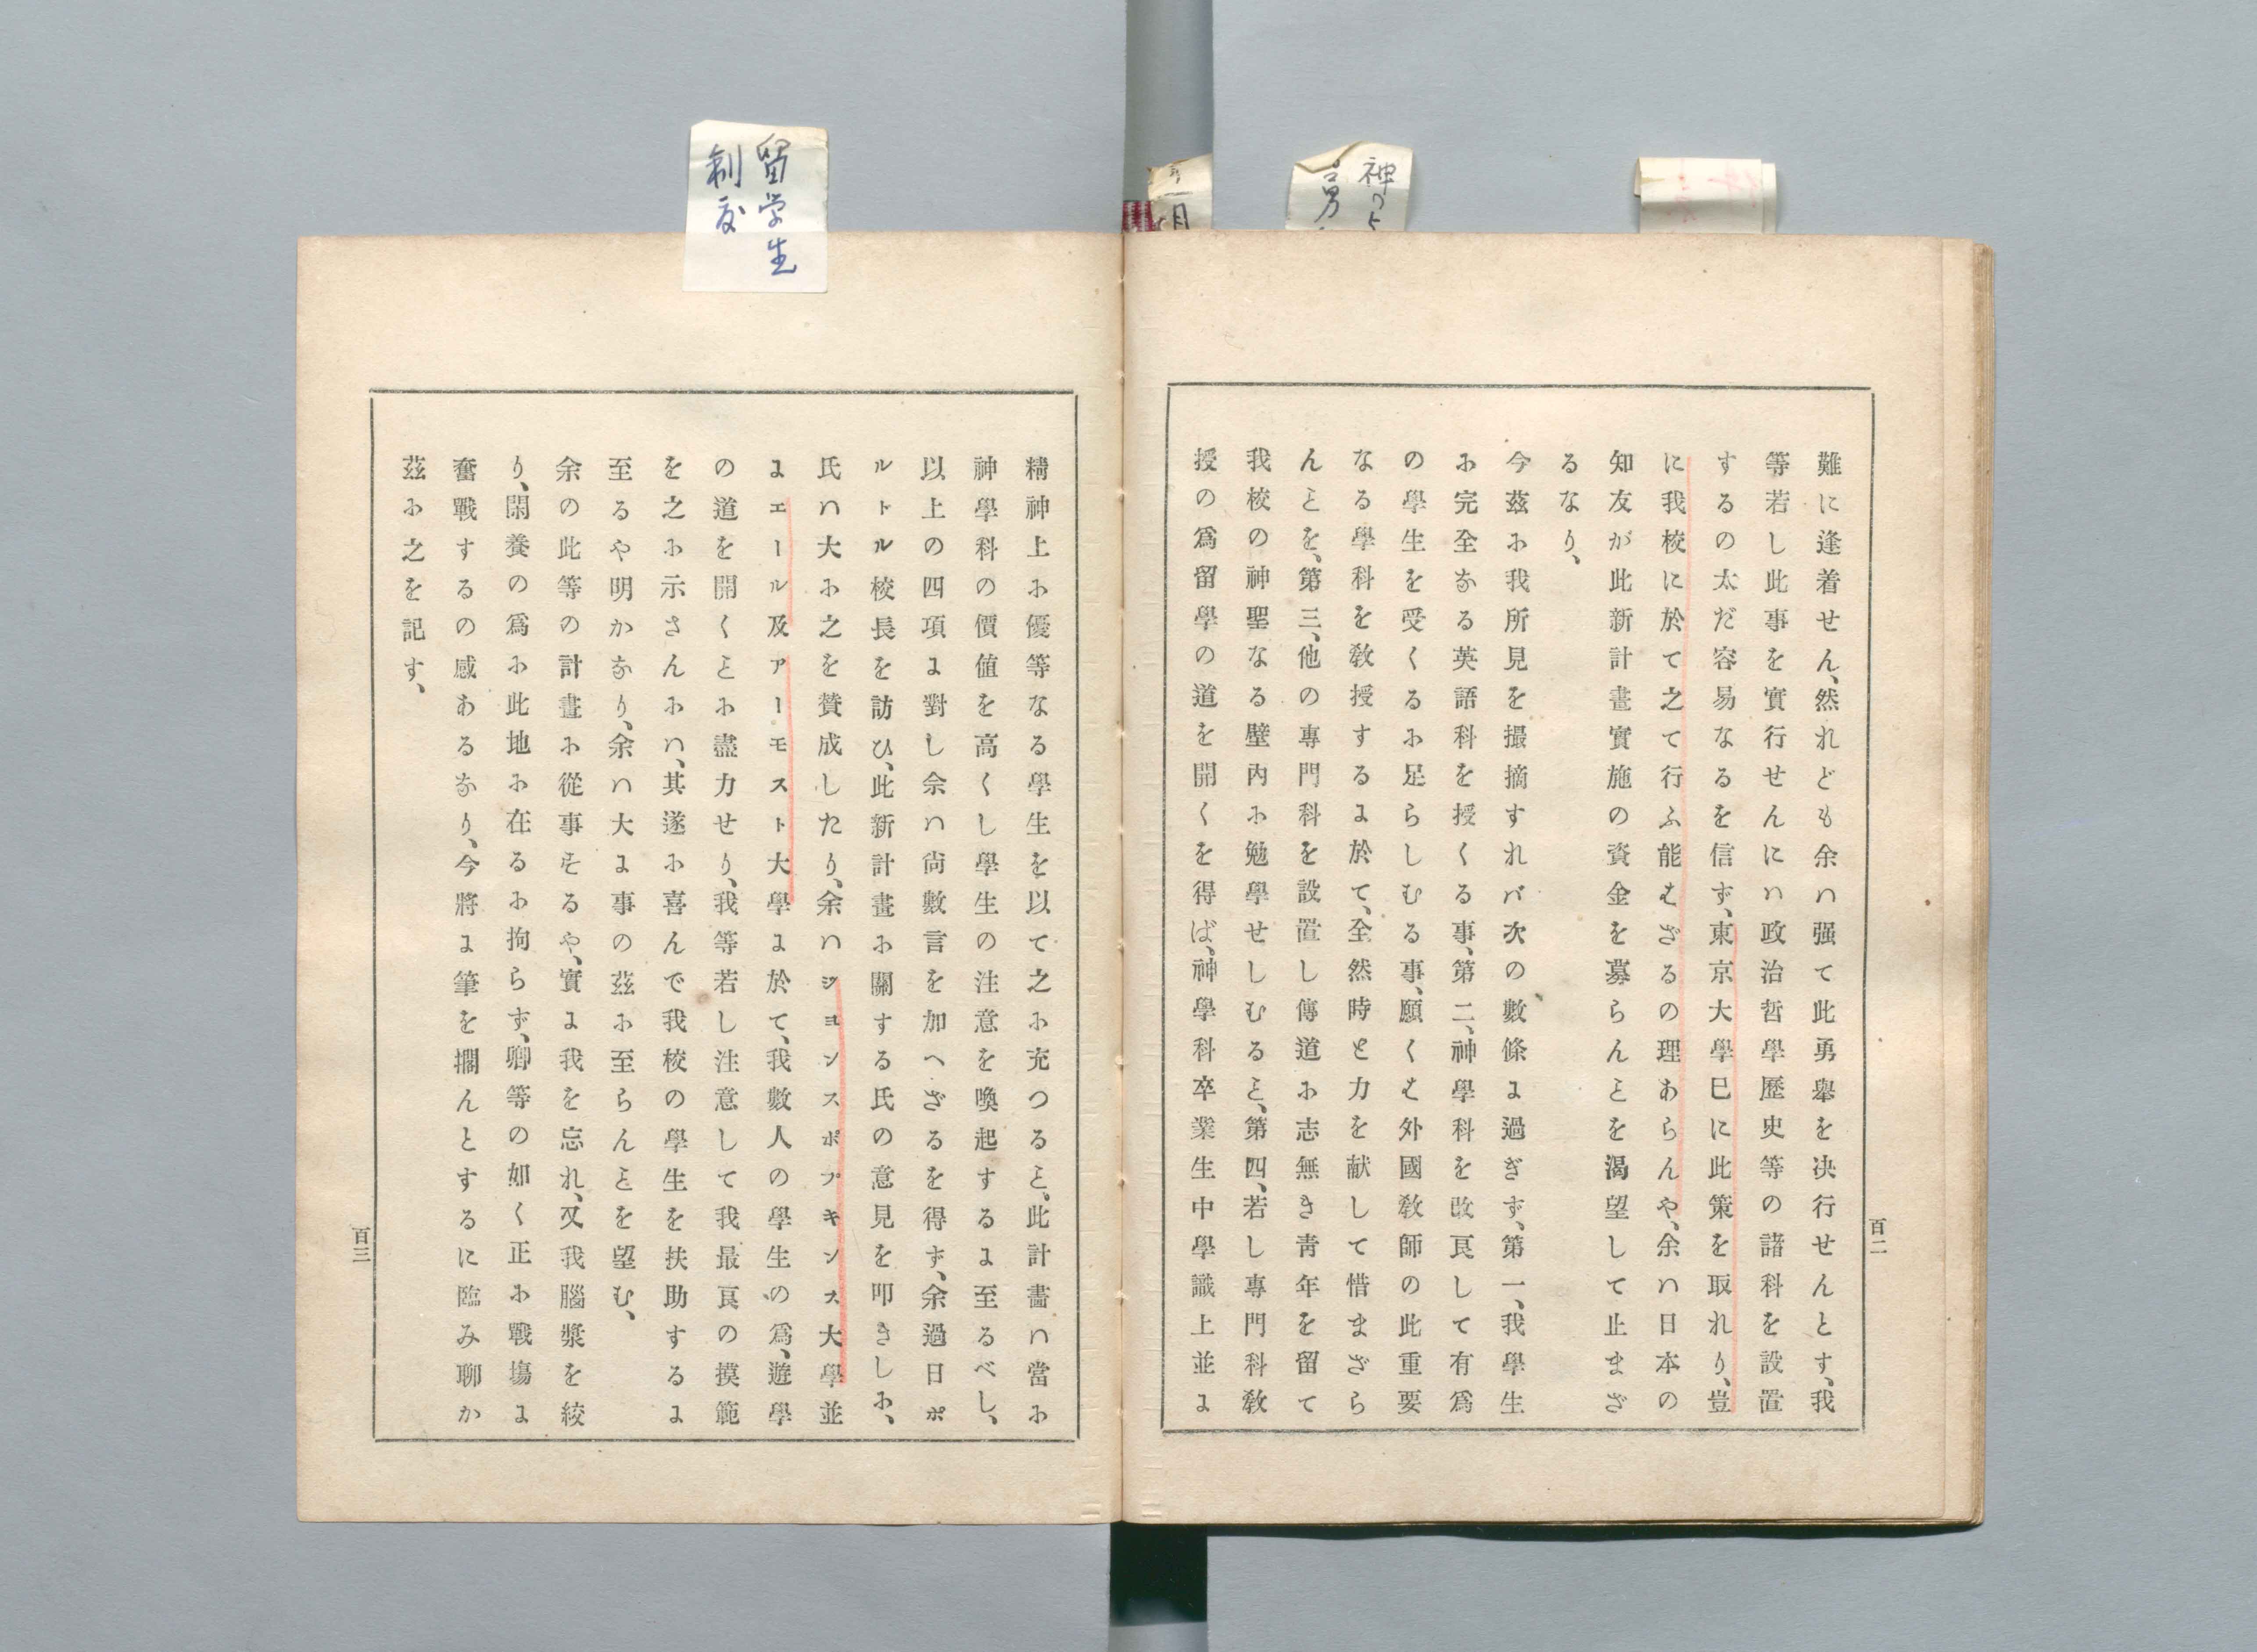 難に逢着せん、然れども余ハ强て此勇擧を决行せんとす、我
等若し此事を實行せんにハ政治哲學歷史等の諸科を設置
するの太だ容易なるを信ず、東京大學巳に此策を取れり、豈
に我校に於て之て行ふ能はざるの理あらんや、余ハ日本の
知友が此新計畫實施の資金を募らんとを渴望して止まざ
るなり、
今茲に我所見を撮摘すれバ次の數條に過ぎず、第一、我學生
に完全なる英語科を授くる事、第二、神學科を改良して有爲
の學生を受くるに足らしむる事、願くは外國敎師の此重要
なる學科を敎授するに於て、全然時と力を献して惜まざら
んとを、第三、他の專門科を設置し傳道に志無き靑年を留て
我校の神聖なる壁內に勉學せしむると、第四、若し專門科敎
授の爲留學の道を開くを得ば、神學科卒業生中學識上並に
百二
精神上に優等なる學生を以て之に充つると、此計畵ハ當に
神學科の價値を高くし學生の注意を喚起するに至るべし、
以上の四項に對し余ハ尙數言を加へざるを得ず、余過日ポ
ルトル校長を訪ひ、此新計畫に關する氏の意見を叩きしに、
氏ハ大に之を賛成したり、余ハジヨンスホプキンス大學並
にエール及アーモスト大學に於て、我數人の學生の爲、遊學
の道を開くとに盡力せり、我等若し注意して我最良の摸範
を之に示さんにハ、其遂に喜んで我校の學生を扶助するに
至るや明かなり、余ハ大に事の茲に至らんとを望む、
余の此等の計畫に從事するや、實に我を忘れ、又我腦漿を絞
り、閑養の爲に此地に在るに拘らず、卿等の如く正に戰塲に
奮戰するの感あるなり、今將に筆を擱んとするに臨み聊か
茲に之を記す、
百三
留学生
制度
神の
月